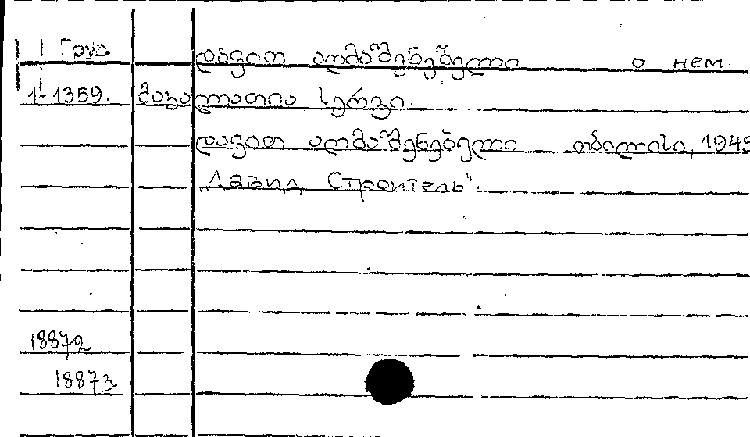 Груз დავით აღმაშენებელი о нем.
1-1359. მაკალათია სერგი.
დავით აღმაშენებელი თბილისი, 1945
„Давид Строитель“.
18872
18873